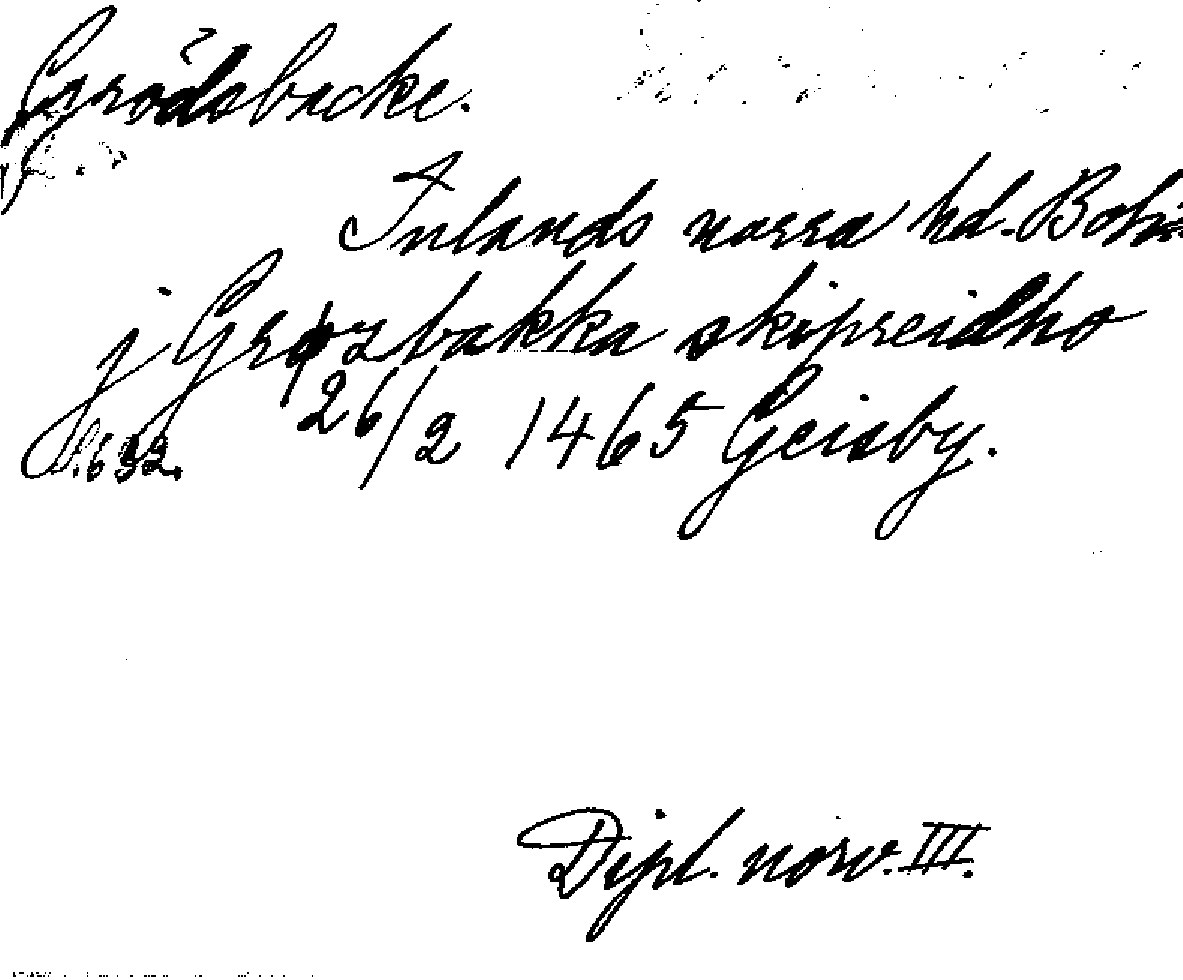 Grödsbacke.
Inlands norra hd. Bohus
j Grøzbakka skipreidho
S. 632. 26/2 1465 Geisby.
Dipl. norv. III.